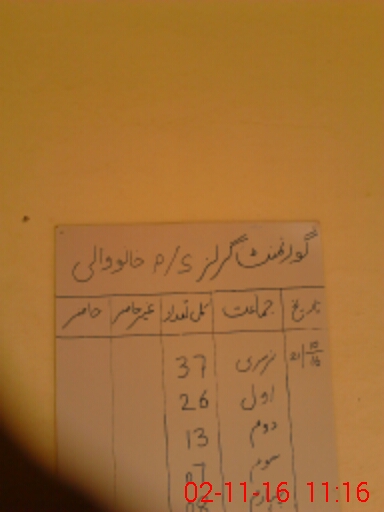 گورنمنٹ گرلز P/S خالووالی
تاریخ جماعت کل تعداد غیر حاضر حاضر
نرسری 37
اول 26
دوم 13
سوم 07
چہارم 08
02-11-16 11:16